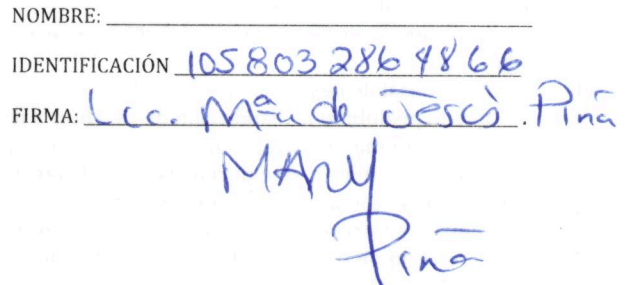 NOMBRE:
IDENTIFICACIÓN 1058032864866
FIRMA: Lic. Mª de Jesús. Piña
MARY
Piña